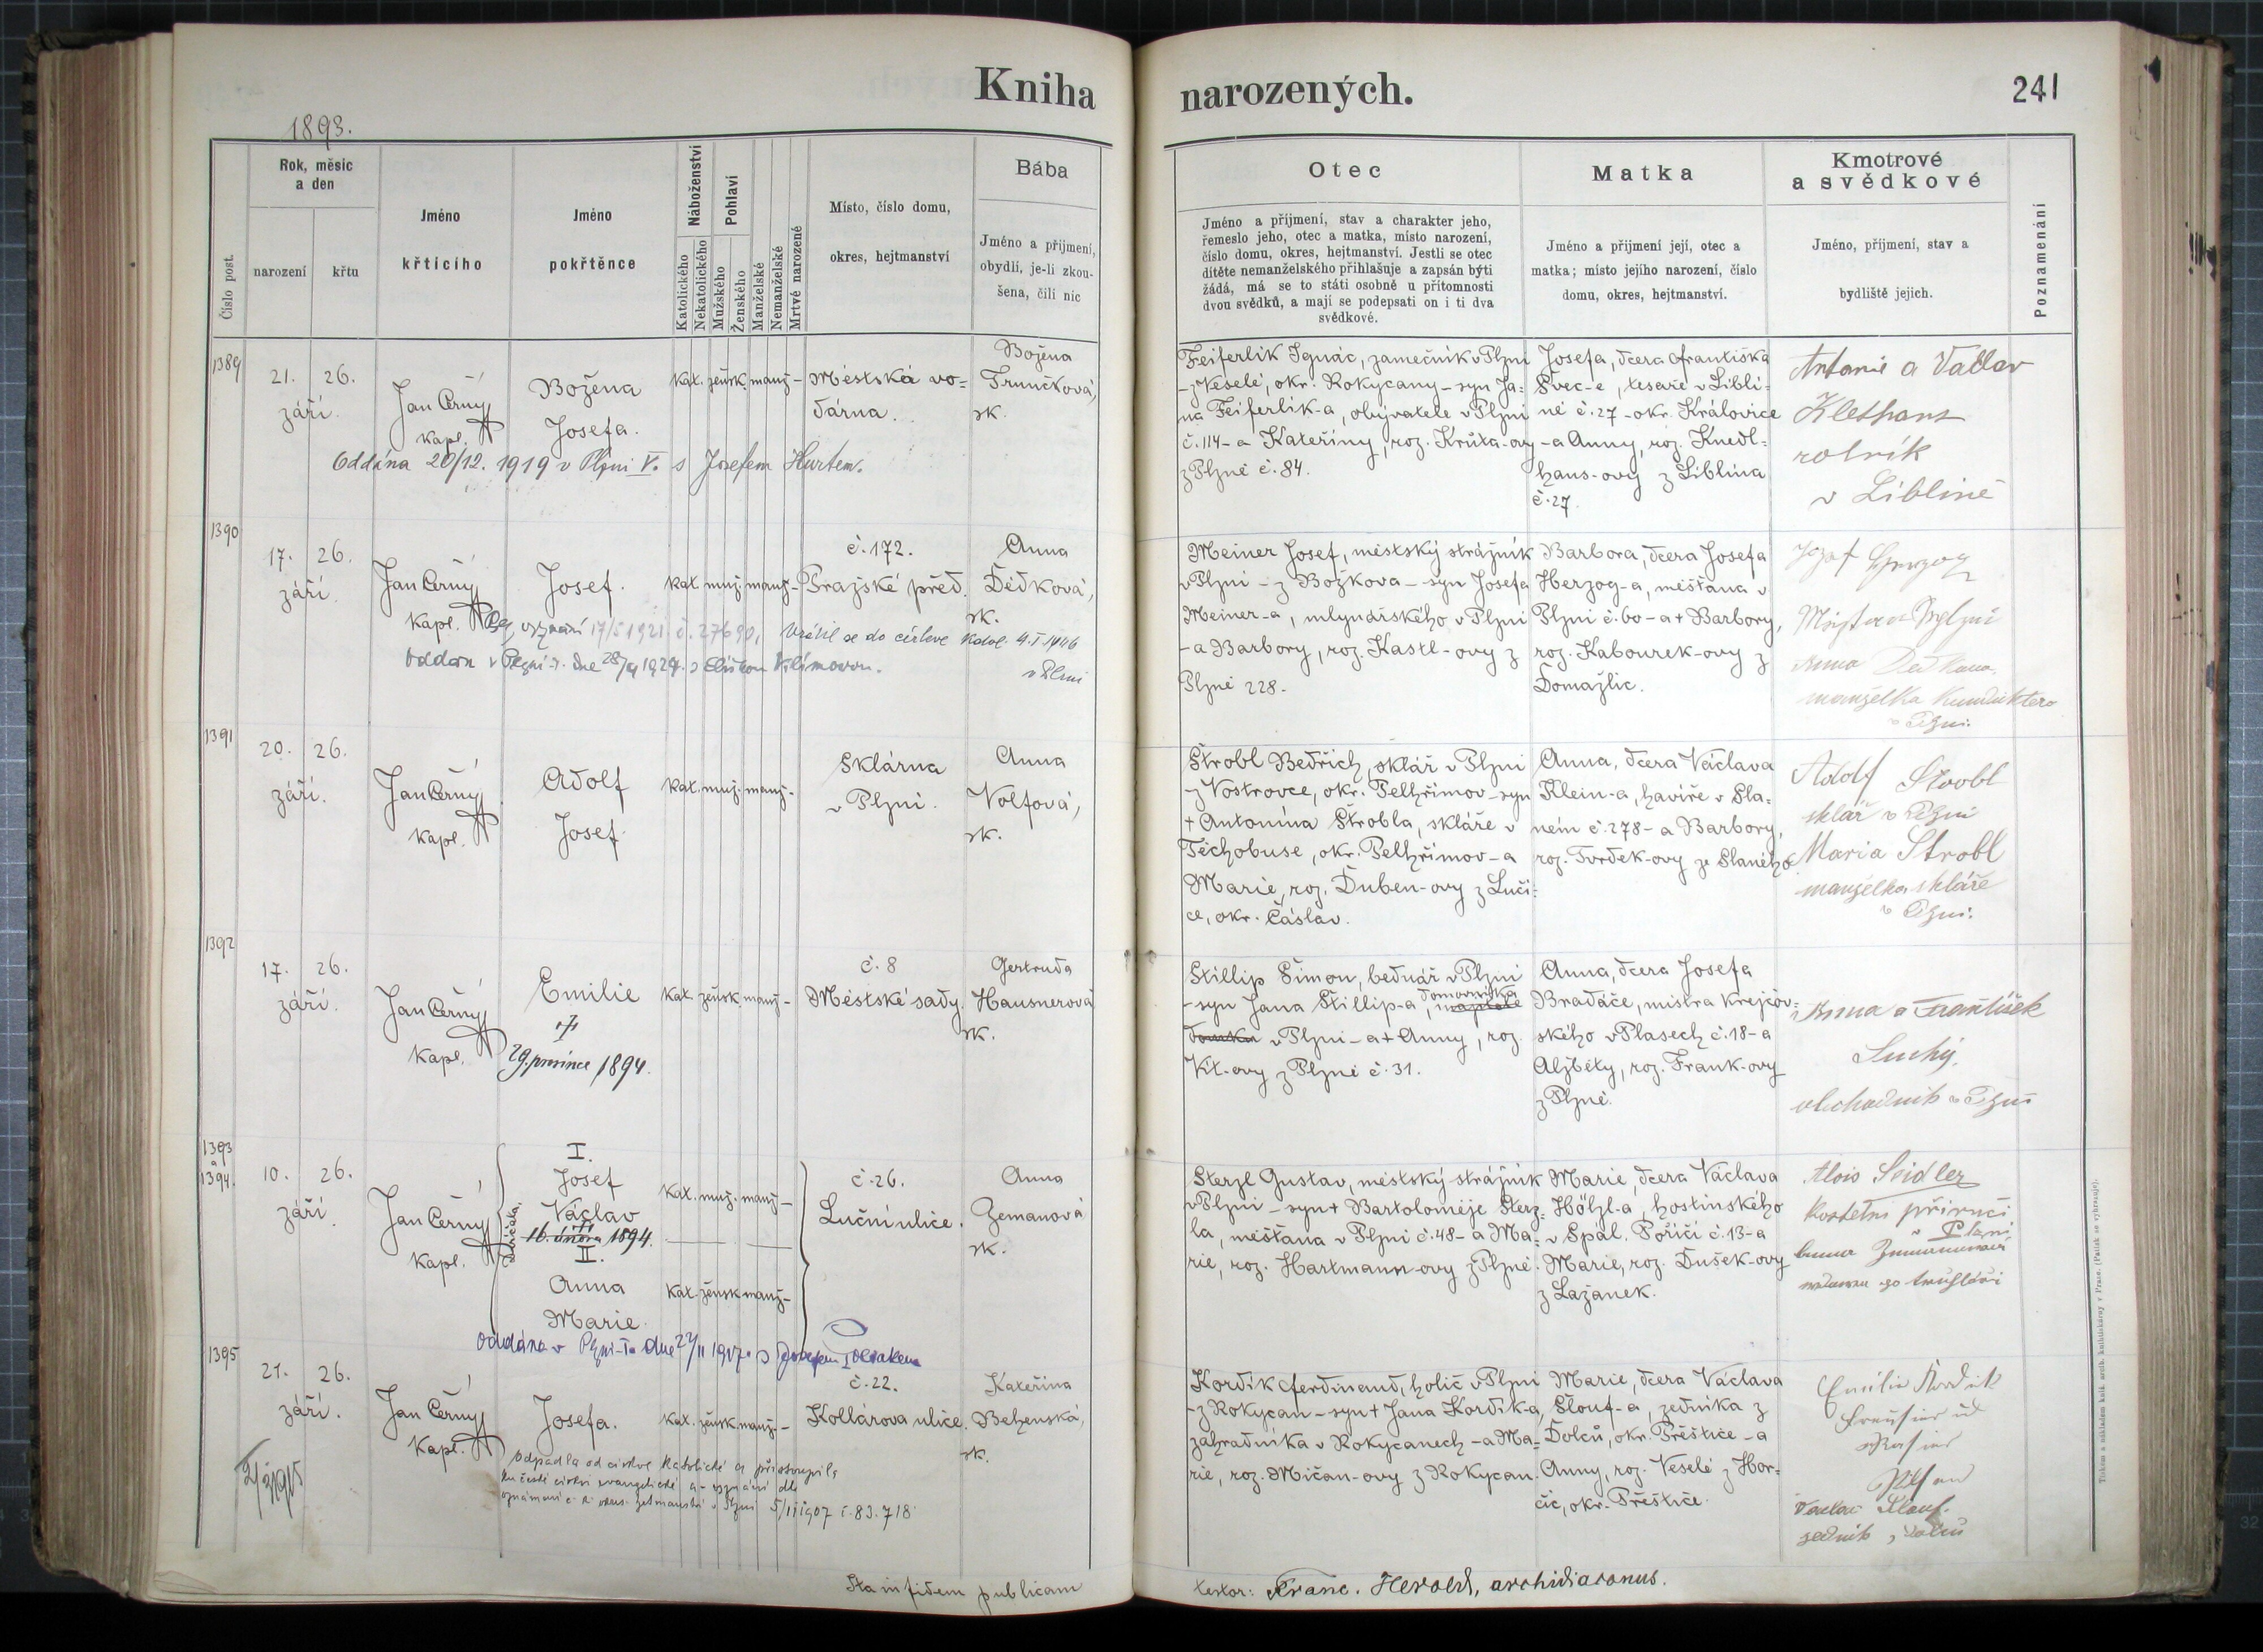 Kniha narozených.
241
1893.
Číslo post.
Rok, měsíc
a den
narození
křtu
Jméno
křtícího
Jméno
pokřtěnce
Náboženství
Katolického
Nekatolického
Pohlaví
Mužského
Ženského
Manželské
Nemanželské
Mrtvě narozené
Místo, číslo domu,
okres, hejtmanství
Bába
Jméno a přijmení,
obydlí, je-li zkou-
šena, čili nic
Otec
Jméno a příjmení, stav a charakter jeho,
řemeslo jeho, otec a matka, místo narození,
číslo domu, okres, hejtmanství. Jestli se otec
dítěte nemanželského přihlašuje a zapsán býti
žádá, má se to státi osobně u přítomnosti
dvou svědků, a mají se podepsati on i ti dva
svědkové.
Matka
Jméno a přijmení její, otec a
matka; místo jejího narození, číslo
domu, okres, hejtmanství.
Kmotrové
a svědkové
Jméno, příjmení, stav a
bydliště jejich.
Poznamenání
1389
21. 26.
září.
Jan Černý
kapl.
Božena
Josefa.
kat. žensk. manž-
Městská vo=
dárna.
Božena
Trunčková,
zk.
Oddána 20/12. 1919 v Plzni V. s Josefem Hurtem.
Feiferlik Ignác, zamečník v Plzni
- z Veselé, okr. Rokycany - syn Ja=
na Feiferlik-a, obývatele v Plzni
č. 114 - a Kateřiny, roz. Krůta-ovy
z Plzně č. 84.
Josefa, dcera Františka
Švec-e, tesaře v Libli=
ně č. 27 - okr. Královice
- a Anny, roz. Knedl=
hans-ovy z Liblína
č. 27.
Antonie a Václav
rolník
v Liblíně
1390
17. 26.
září.
Jan Černý
kapl.
Josef.
kat. muž. manž-
č. 172.
Pražské před.
Anna
Dědková,
zk.
Bez vyznání 17/5 1921 č. 27690, Vrátil se do církve katol. 4.I 1946
v Plzni
Oddán v Plzni
Eliškou Klímovou.
Meiner Josef, městský strážník
v Plzni - z Božkova - syn Josefa
Meiner-a, mlynářského v Plzni
- a Barbory, roz. Kastl-ovy z
Plzně 228.
Barbora, dcera Josefa
Herzog-a, měšťana v
Plzni č. 60 - a + Barbory,
roz. Kabourek-ovy z
Domažlic.
Anna
manželka kunduktera
v Plzni.
1391
20. 26.
září.
Jan Černý
kapl.
Adolf
Josef.
kat. muž. manž-
Sklárna
v Plzni.
Anna
Volfová,
zk.
Štrobl Bedřich, sklář v Plzni
z Vostrovce, okr. Pelhřimov - syn
+ Antonína Štrobla, skláře v
Těchobuse, okr. Pelhřimov - a
Marie, roz. Duben-ovy z Luči=
ce, okr. Čáslav.
Anna, dcera Václava
Klein-a, havíře v Sla=
ném č. 278 - a Barbory,
roz. Tvrdek-ovy ze Slaného.
Adolf Strobl
sklář v Plzni
Maria Strobl
manželka skláře
v Plzni.
1392
17. 26.
září.
Jan Černý
kapl.
Emilie
29. prosince 1894.
kat. žensk. manž-
č. 8
Městské sady.
Gertruda
Hausnerová
zk.
Štillip Šimon, bednář v Plzni
- syn Jana Štillip-a, domovníka
v Plzni - a + Anny, roz.
Kit-ovy z Plzně č. 31.
Anna, dcera Josefa
Bradáče, mistra krejčov=
ského v Plasech č. 18 - a
Alžběty, roz. Frank-ovy
z Plzně.
Anna a František
Suchý,
obchodník v Plzni
1393
a
1394.
10. 26.
září
Jan Černý
kapl.
Dvojčata.
I.
Josef
Václav
16. února 1894.
II.
Anna
Marie.
kat. muž. manž-
kat. žensk. manž-
č. 26.
Luční ulice.
Anna
Zemanová
zk.
Oddána v Plzni
Sterzl Gustav, městský strážník
v Plzni - syn + Bartoloměje Sterz=
la, měšťana v Plzni č. 48 - a Ma=
rie, roz. Hartmann-ovy z Plzně.
Marie, dcera Václava
Hölzl-a, hostinského
v Spál. Poříčí č. 13 - a
Marie, roz. Dušek-ovy
z Lažánek.
Alois Seidler
kostelní příručí
v Plzni.
1395
21. 26.
září.
Jan Černý
kapl.
Josefa.
kat. žensk. manž-
č. 22.
Kollárova ulice.
Kateřina
Behenská,
zk.
Odpadla od církve katolické a přistoupila
ku české církvi evangelické
5/11 1907 č. 83.718
Kordík Ferdinand, holič v Plzni
- z Rokycan - syn + Jana Kordík-a,
zahradníka v Rokycanech - a Ma=
rie, roz. Mičan-ovy z Rokycan.
Marie, dcera Václava
Šlouf-a, zedníka z
Dolců, okr. Přeštice - a
Anny, roz. Veselé z Hor=
čic, okr. Přeštice.
Emilie Kordik
Pilsen
Václav Šlouf
zedník z Dolců
Sta in fidem publicam
testor: Franc. Herold, archidiaconus.